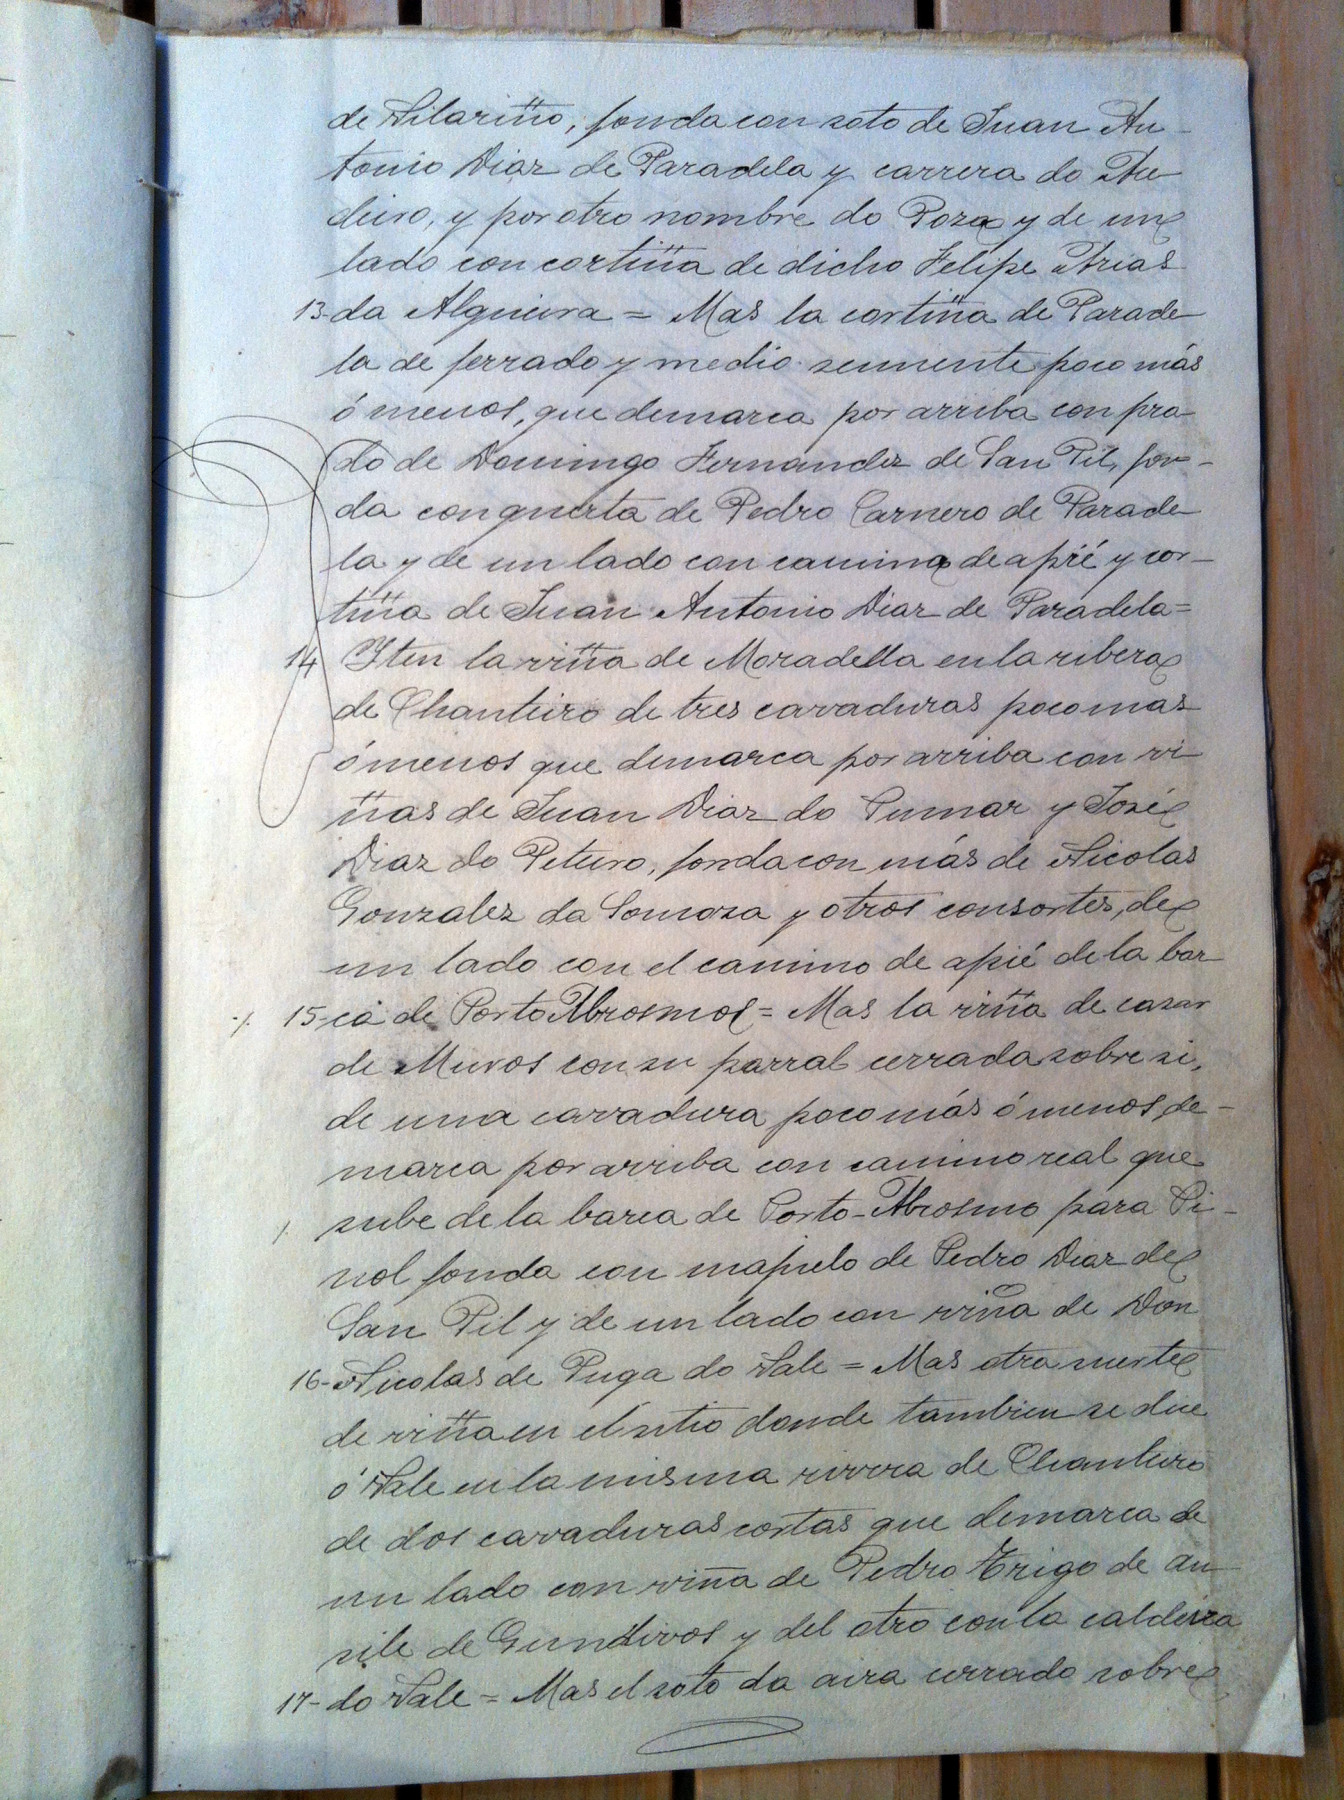 de Vilariño, fonda con soto de Juan An-
tonio Diaz de Paradela y carrera do Au-
deiro, y por otro nombre do Poza y de un
lado con cortiña de dicho Felipe Arias
13-da Algueira = Mas la cortiña de Parade-
la de ferrado y medio semente poco más
ó menos, que demarca por arriba con pra-
do de Domingo Fernandez de San Pil, fon-
da con guerta de Pedro Carnero de Parade-
la y de un lado con camino de apié y cor-
tiña de Juan Antonio Diaz de Paradela=
14 Iten la viña de Moradella en la ribera
de Chanteiro de tres cavaduras poco mas
ó menos que demarca por arriba con vi-
ñas de Juan Diaz do Pumar y José
Diaz do Peteiro, fonda con más de Nicolas
Gonzalez da Somoza y otros consortes, de
un lado con el camino de apié de la bar-
-/. 15-ca de Porto Abrosmos = Mas la viña de cazar
de Muros con su parral cerrada sobre si,
de una cavadura poco más ó menos, de-
marca por arriba con camino real que
/. sube de la barca de Porto-Abrosmo para Pi-
nol fonda con mapelo de Pedro Diaz de
San Pil y de un lado con viña de Don
16-Nicolas de Puga do Vale = Mas otra suerte
de viña en el sitio donde tambien se dice
ó Vale en la misma rivera de Chanteiro
de dos cavaduras cortas que demarca de
un lado con viña de Pedro Trigo de au-
sile de Gundivos y del otro con la caldeira
17-do Vale = Mas el soto da aira cerrado sobre